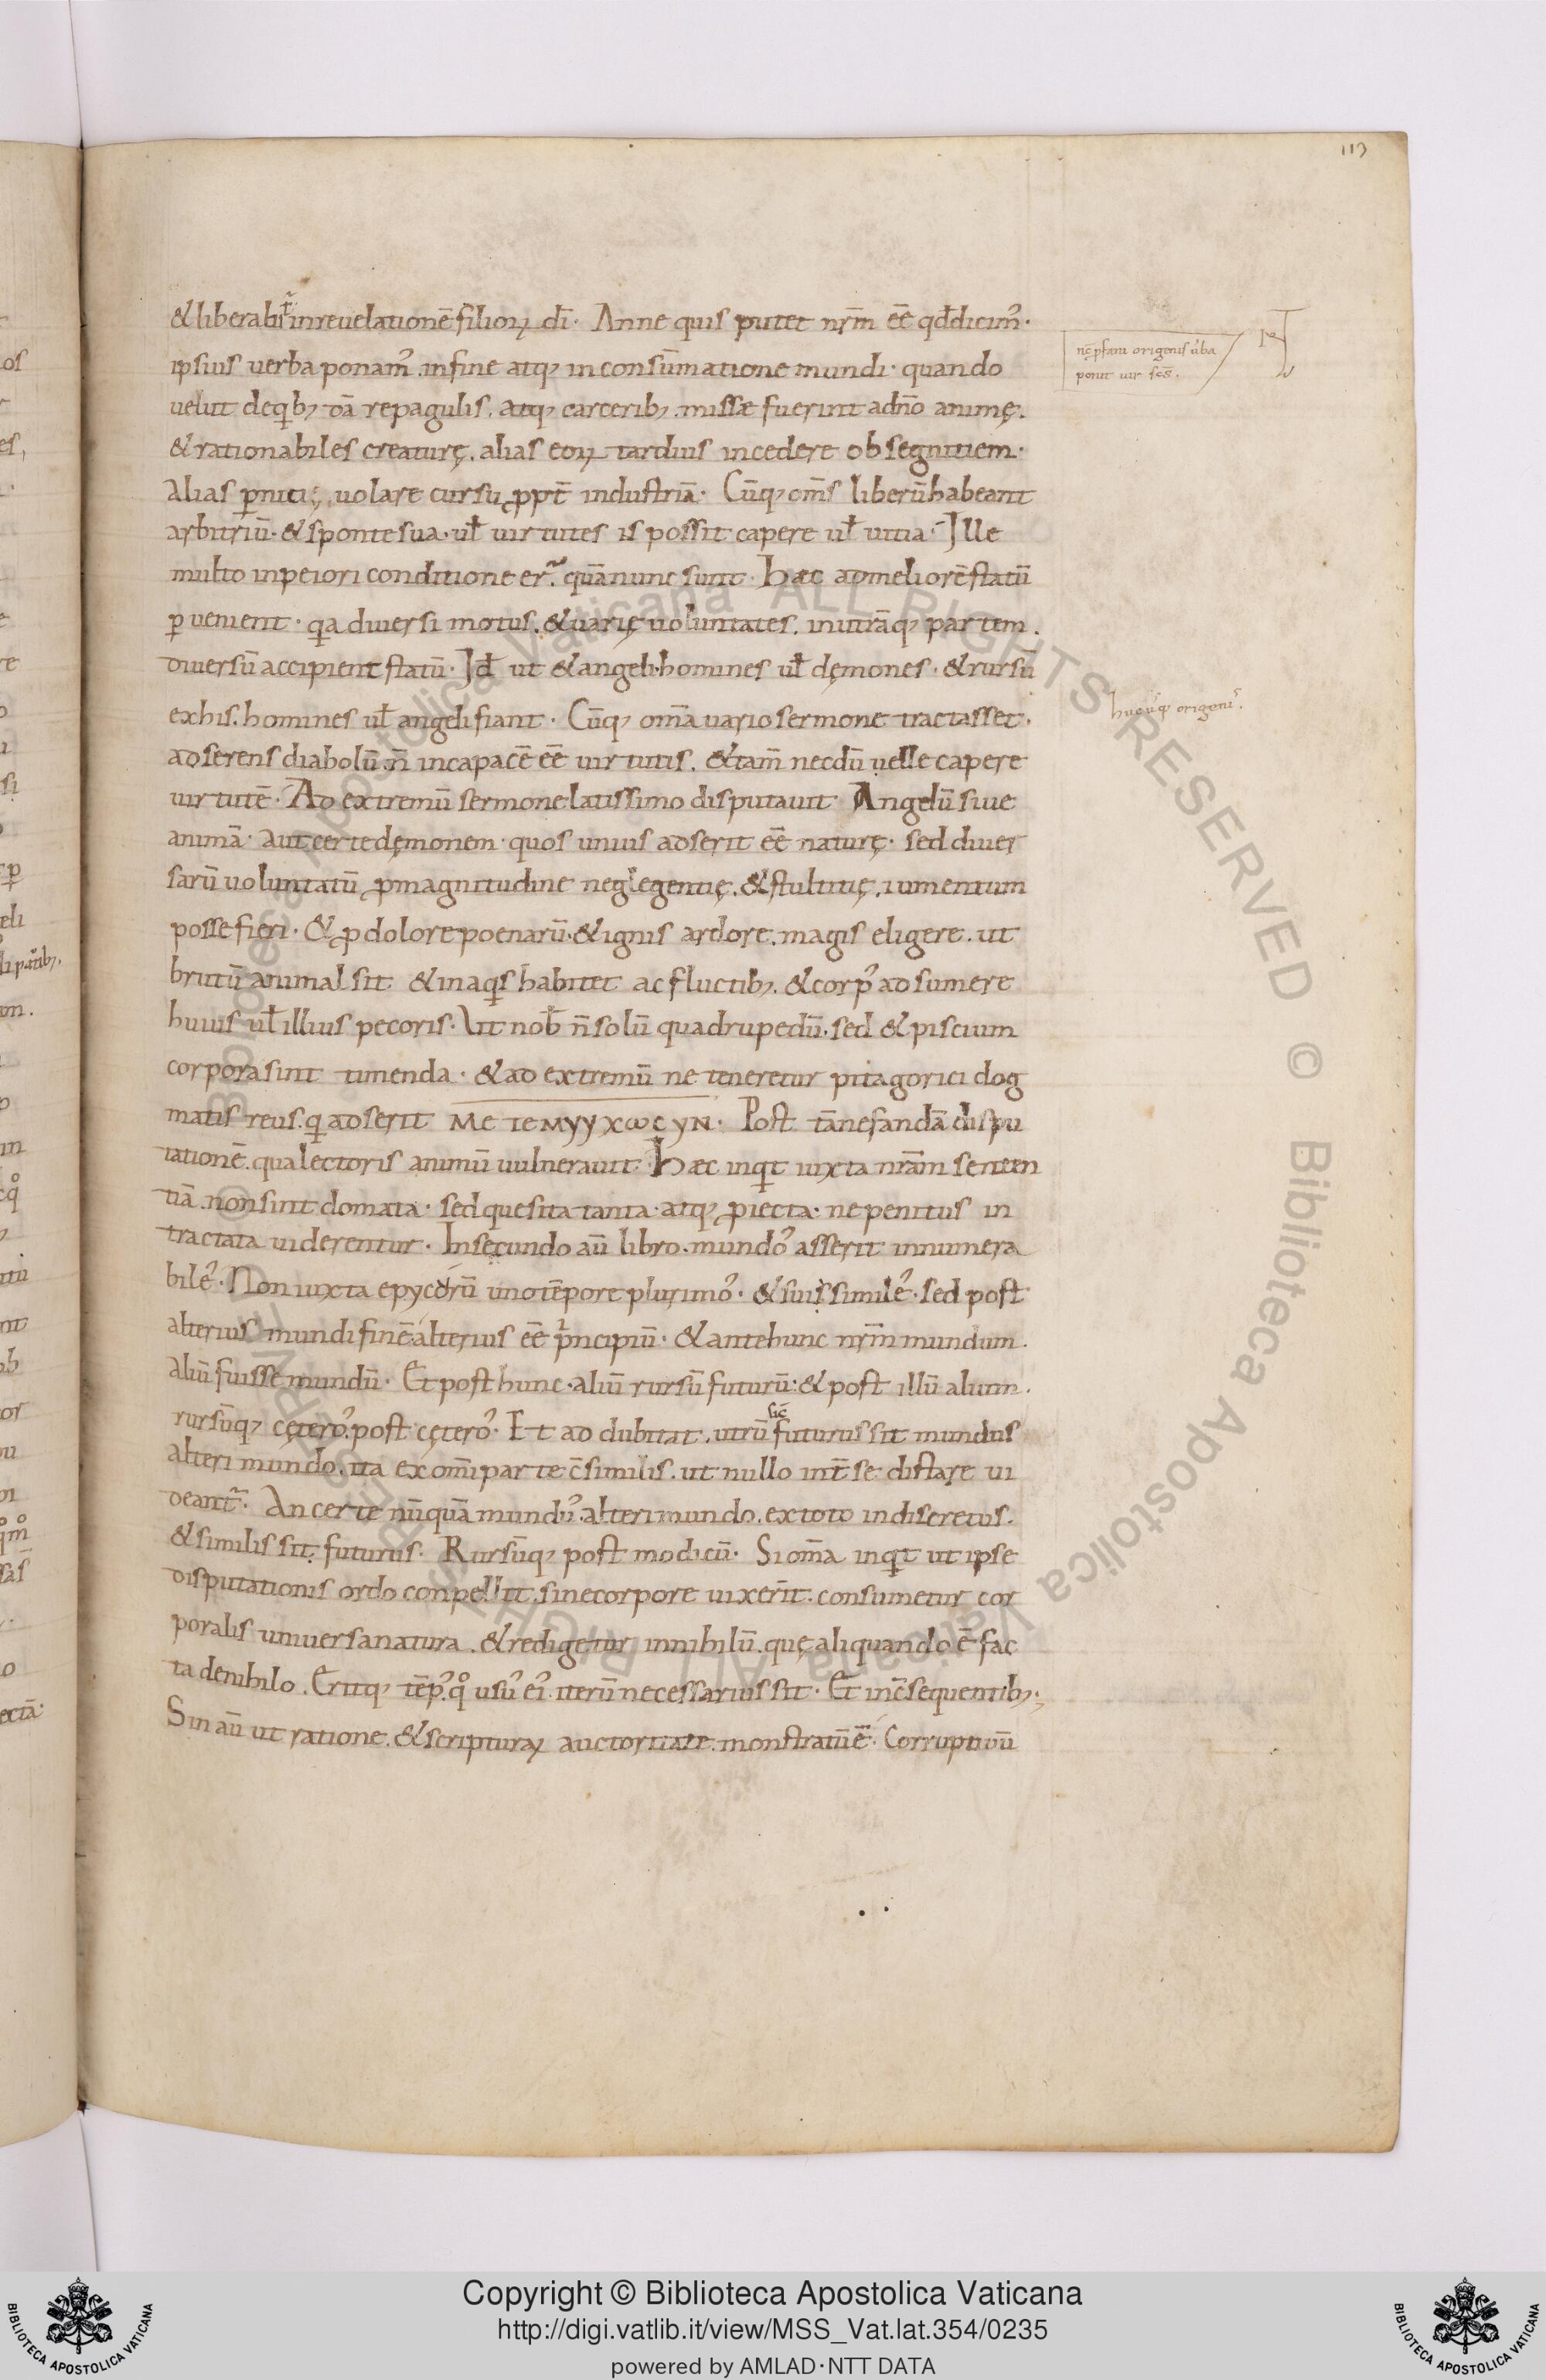 113
&liberabit̃ inreuelationē filioꝝ dī· Anne quis putet nr̄m eē qđ dicimꝰ·
ipsius uerba ponamꝰ. infine atq; inconsūmatione mundi· quando
uelut deq̇b; dā repagulis. atq; carcerib;. missæ fuerint adn̄o animę.
&rationabiles creaturę. alias eoꝝ tardius incedere ob segnitiem·
Alias ꝑnici; uolare cursu ꝓpt̄ industriā· Cūq; om̄s liberū habeant
arbitriū· &sponte sua· ul̄ uirtutes is possit capere ul̄ uitia· Ille
multo inpeiori conditione er̃. quā nunc sunt· Hæc admeliorē statū
ꝑuenient· qa diuersi motus. &uarię uoluntates. inutrāq; partem.
diuersū accipient statū· Id̄ ut &angeli· homines ul̄ dęmones· &rursū
exhis. homines ul̄ angeli fiant· Cūq; om̄a uario sermone tractasset.
adserens diabolū. n̄ incapacē eē uirtutis. &tam̄ necdū uelle capere
uirtutē· Ad extremū sermone latissimo disputauit· Angelū siue
animā· aut certe dęmonem· quos unius adserit eē naturę· sed diuer
sarū uoluntatū ꝓmagnitudine neglegentię. &stultitię. iumentum
posse fieri· &ꝓ dolore poenarū· &ignis ardore. magis eligere. ut
brutū animal sit &inaq̇s habitet ac fluctib;. &corpꝰ adsumere
huius ul̄ illius pecoris· Ut nob̄ n̄ solū quadrupedū· sed &piscium
corpora sint timenda· &ad extremū ne teneretur pitagorici dog
matis reus. q̇ adserit ΜΕ ΤΕΜΥΥΧωϹΥΝ· Post tā nefandā dispu
tationē. qua lectoris animū uulnerauit· Hæc inq̇t iuxta nr̄am senten
tiā. non sint domata· sed quesita tanta· atq; ꝓiecta· ne penitus in
tractata uiderentur· Insecundo aū libro. mundoꝰ asserit innumera
bileꝰ· Non iuxta epycorū uno tēpore plurimoꝰ· &suis simileꝰ· sed post
alterius mundi finē alterius eē pͥncipiū· &ante hunc nr̄m mundum.
aliū fuisse mundū· Et post hunc· aliū rursū futurū: &post illū alium.
rursūq; cęteroꝰ. post cęteroꝰ· Et addubitat. utrū sic̄ futurus sit mundus
alteri mundo. ita exom̄i parte c̄similis. ut nullo int̄ se distare ui
deant̃· An certe nūquā mundꝰ. alteri mundo. extoto indiscretus.
&similis sit futurus· Rursūq; post modicū· Si om̄a inq̇t ut ipse
disputationis ordo conpellit. sine corpore uixer̄it. consumetur cor
poralis uniuersa natura. &redigetur innihilū. quę aliquando ē fac
ta denihilo. Eritq; tēpꝰ. qͦ usꝰ eiꝰ. iterū necessarius sit· Et inc̄sequentib;·
Sin aū ut ratione. &scripturaꝝ auctoritate. monstratū ē· Corruptiuū
nc̄ ꝑfatu origenis ủba
ponit uir sc̄s.
hucusq; origenis.
Copyright © Biblioteca Apostolica Vaticana
http://digi.vatlib.it/view/MSS_Vat.lat.354/0235
powered by AMLAD·NTT DATA
BIBLIOTECA APOSTOLICA VATICANA
BIBLIOTECA APOSTOLICA VATICANA